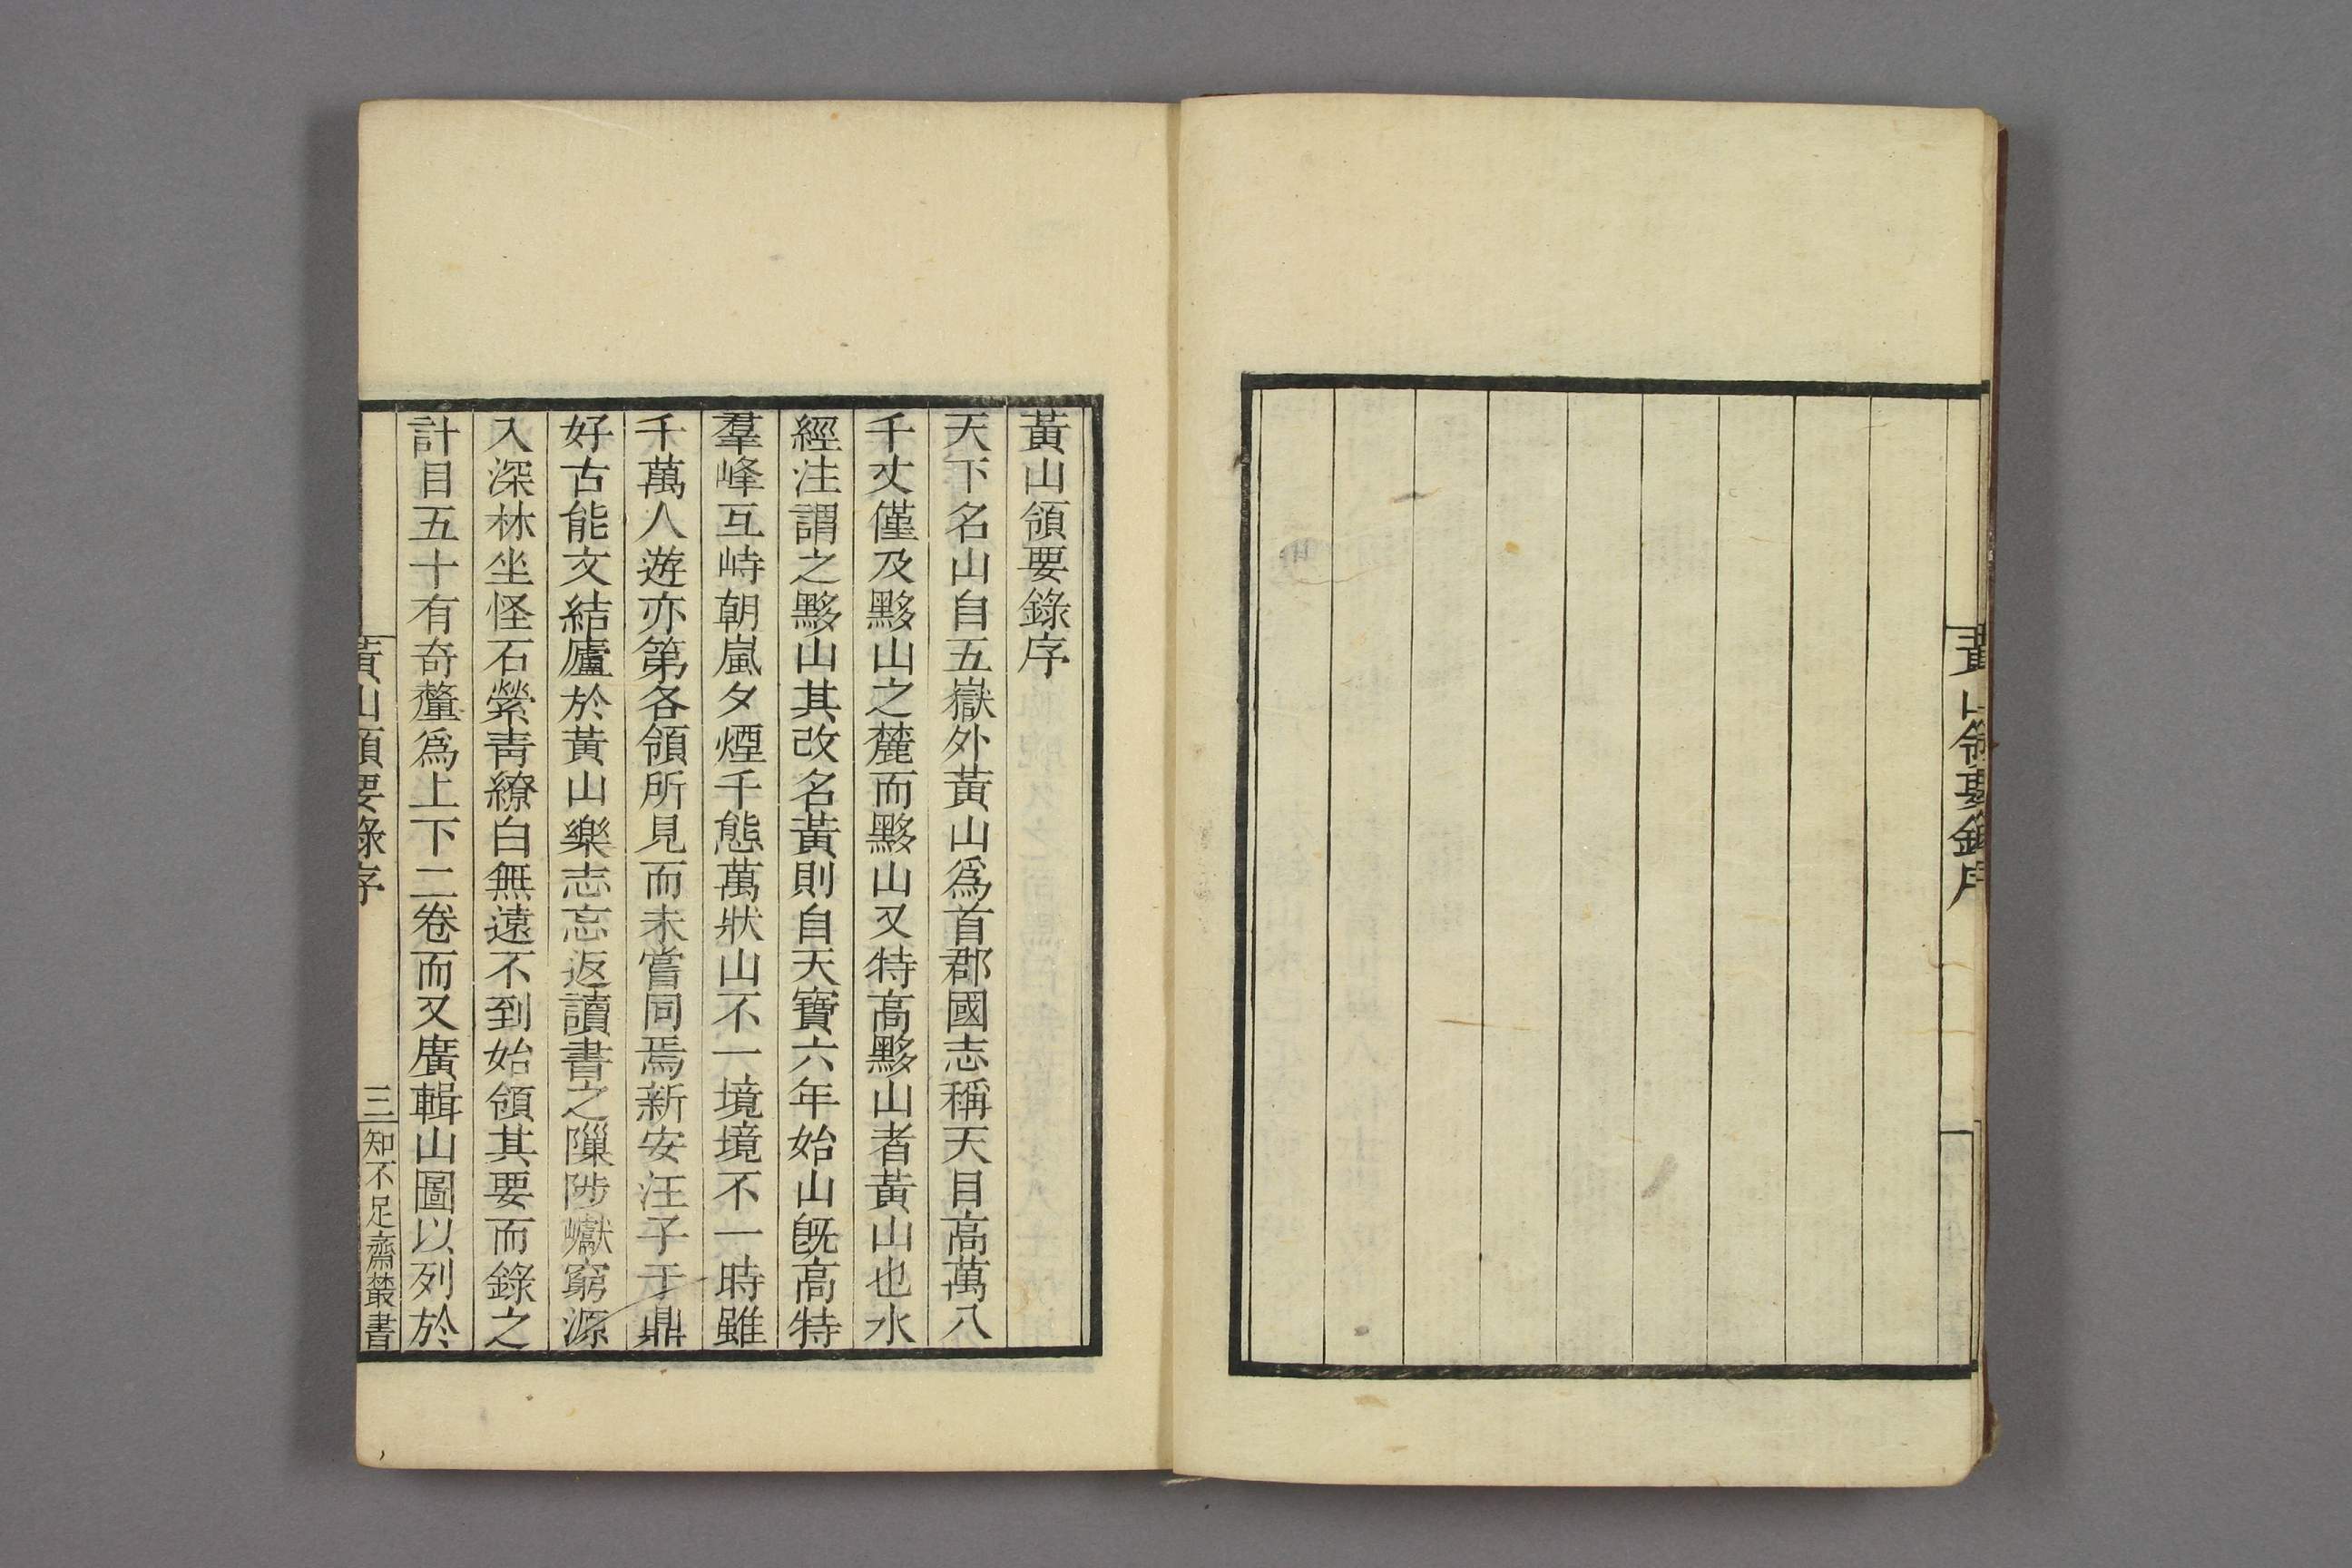 黃山領要錄序
黃山領要錄序
天下名山自五嶽外黃山爲首郡國志稱天目高萬八
千丈僅及黟山之麓而黟山又特高黟山者黃山也水
經注謂之黟山其改名黃則自天寶六年始山旣高特
羣峰互峙朝嵐夕煙千態萬狀山不一境境不一時雖
千萬人遊亦第各領所見而未嘗同焉新安汪子于鼎
好古能文結廬於黃山樂志忘返讀書之隟陟巘窮源
入深林坐怪石縈靑繚白無遠不到始領其要而錄之
計目五十有奇釐爲上下二卷而又廣輯山圖以列於
黃山領要錄序 三 知不足齋叢書